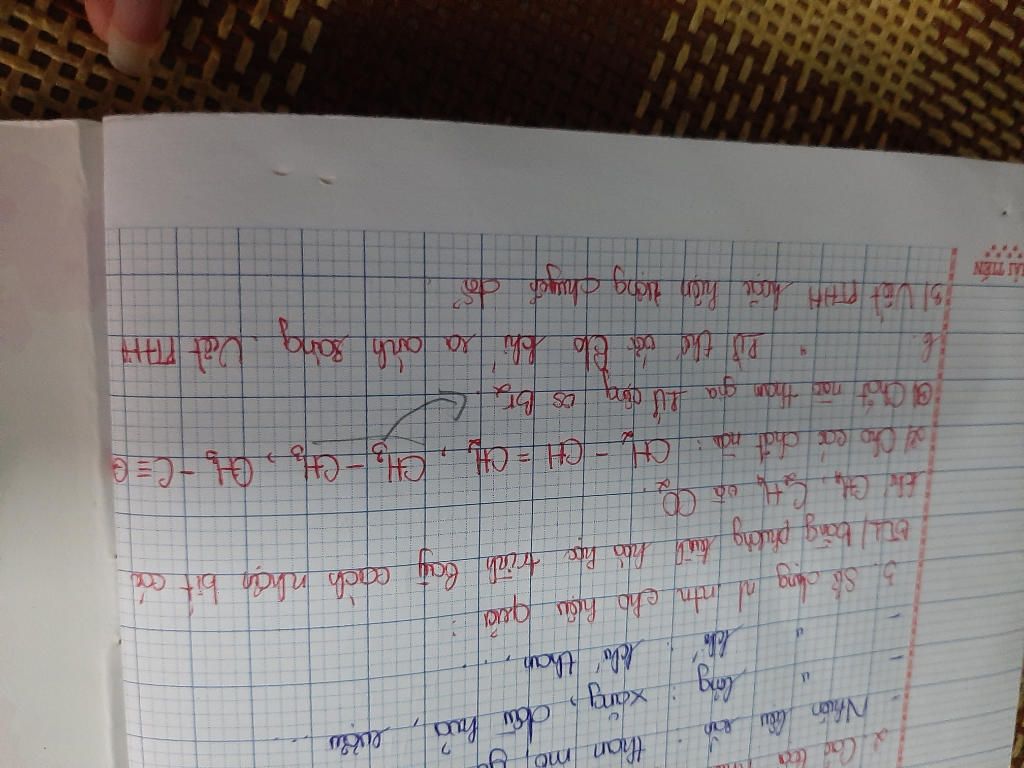 2. Các loại
- Nhiên liệu rắn : than mỏ, g
- " lỏng : xăng, dầu hỏa, rượu ...
- " khí : khí than, ...
3. Sử dụng nl ntn cho hiệu quả :
BT1/ bằng phương trình hóa học trình bày cách nhận bít các
khí CH4, C2H4 và CO2.
2/ Cho các chất nào : CH2 - CH = CH2 , CH3 - CH3 , CH3 - C ≡ C
a) Chất nào tham gia pư cộng vs Br2.
b. " pư thế với Clo khi ra ánh sáng. Viết PTHH
3/ Viết PTHH biểu hiện tượng chuyển đổi
ẢI TIẾN